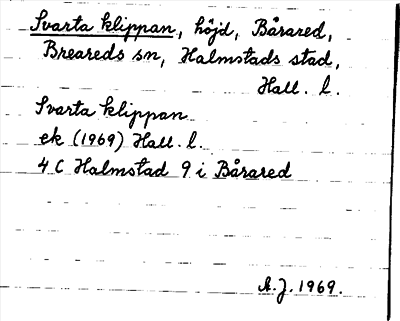 Svarta klippan, höjd, Bårared,
Breareds sn, Halmstads stad,
Hall. l.
Svarta klippan
ek (1969) Hall. l.
4 C Halmstad 9 i Bårared
A.J. 1969.